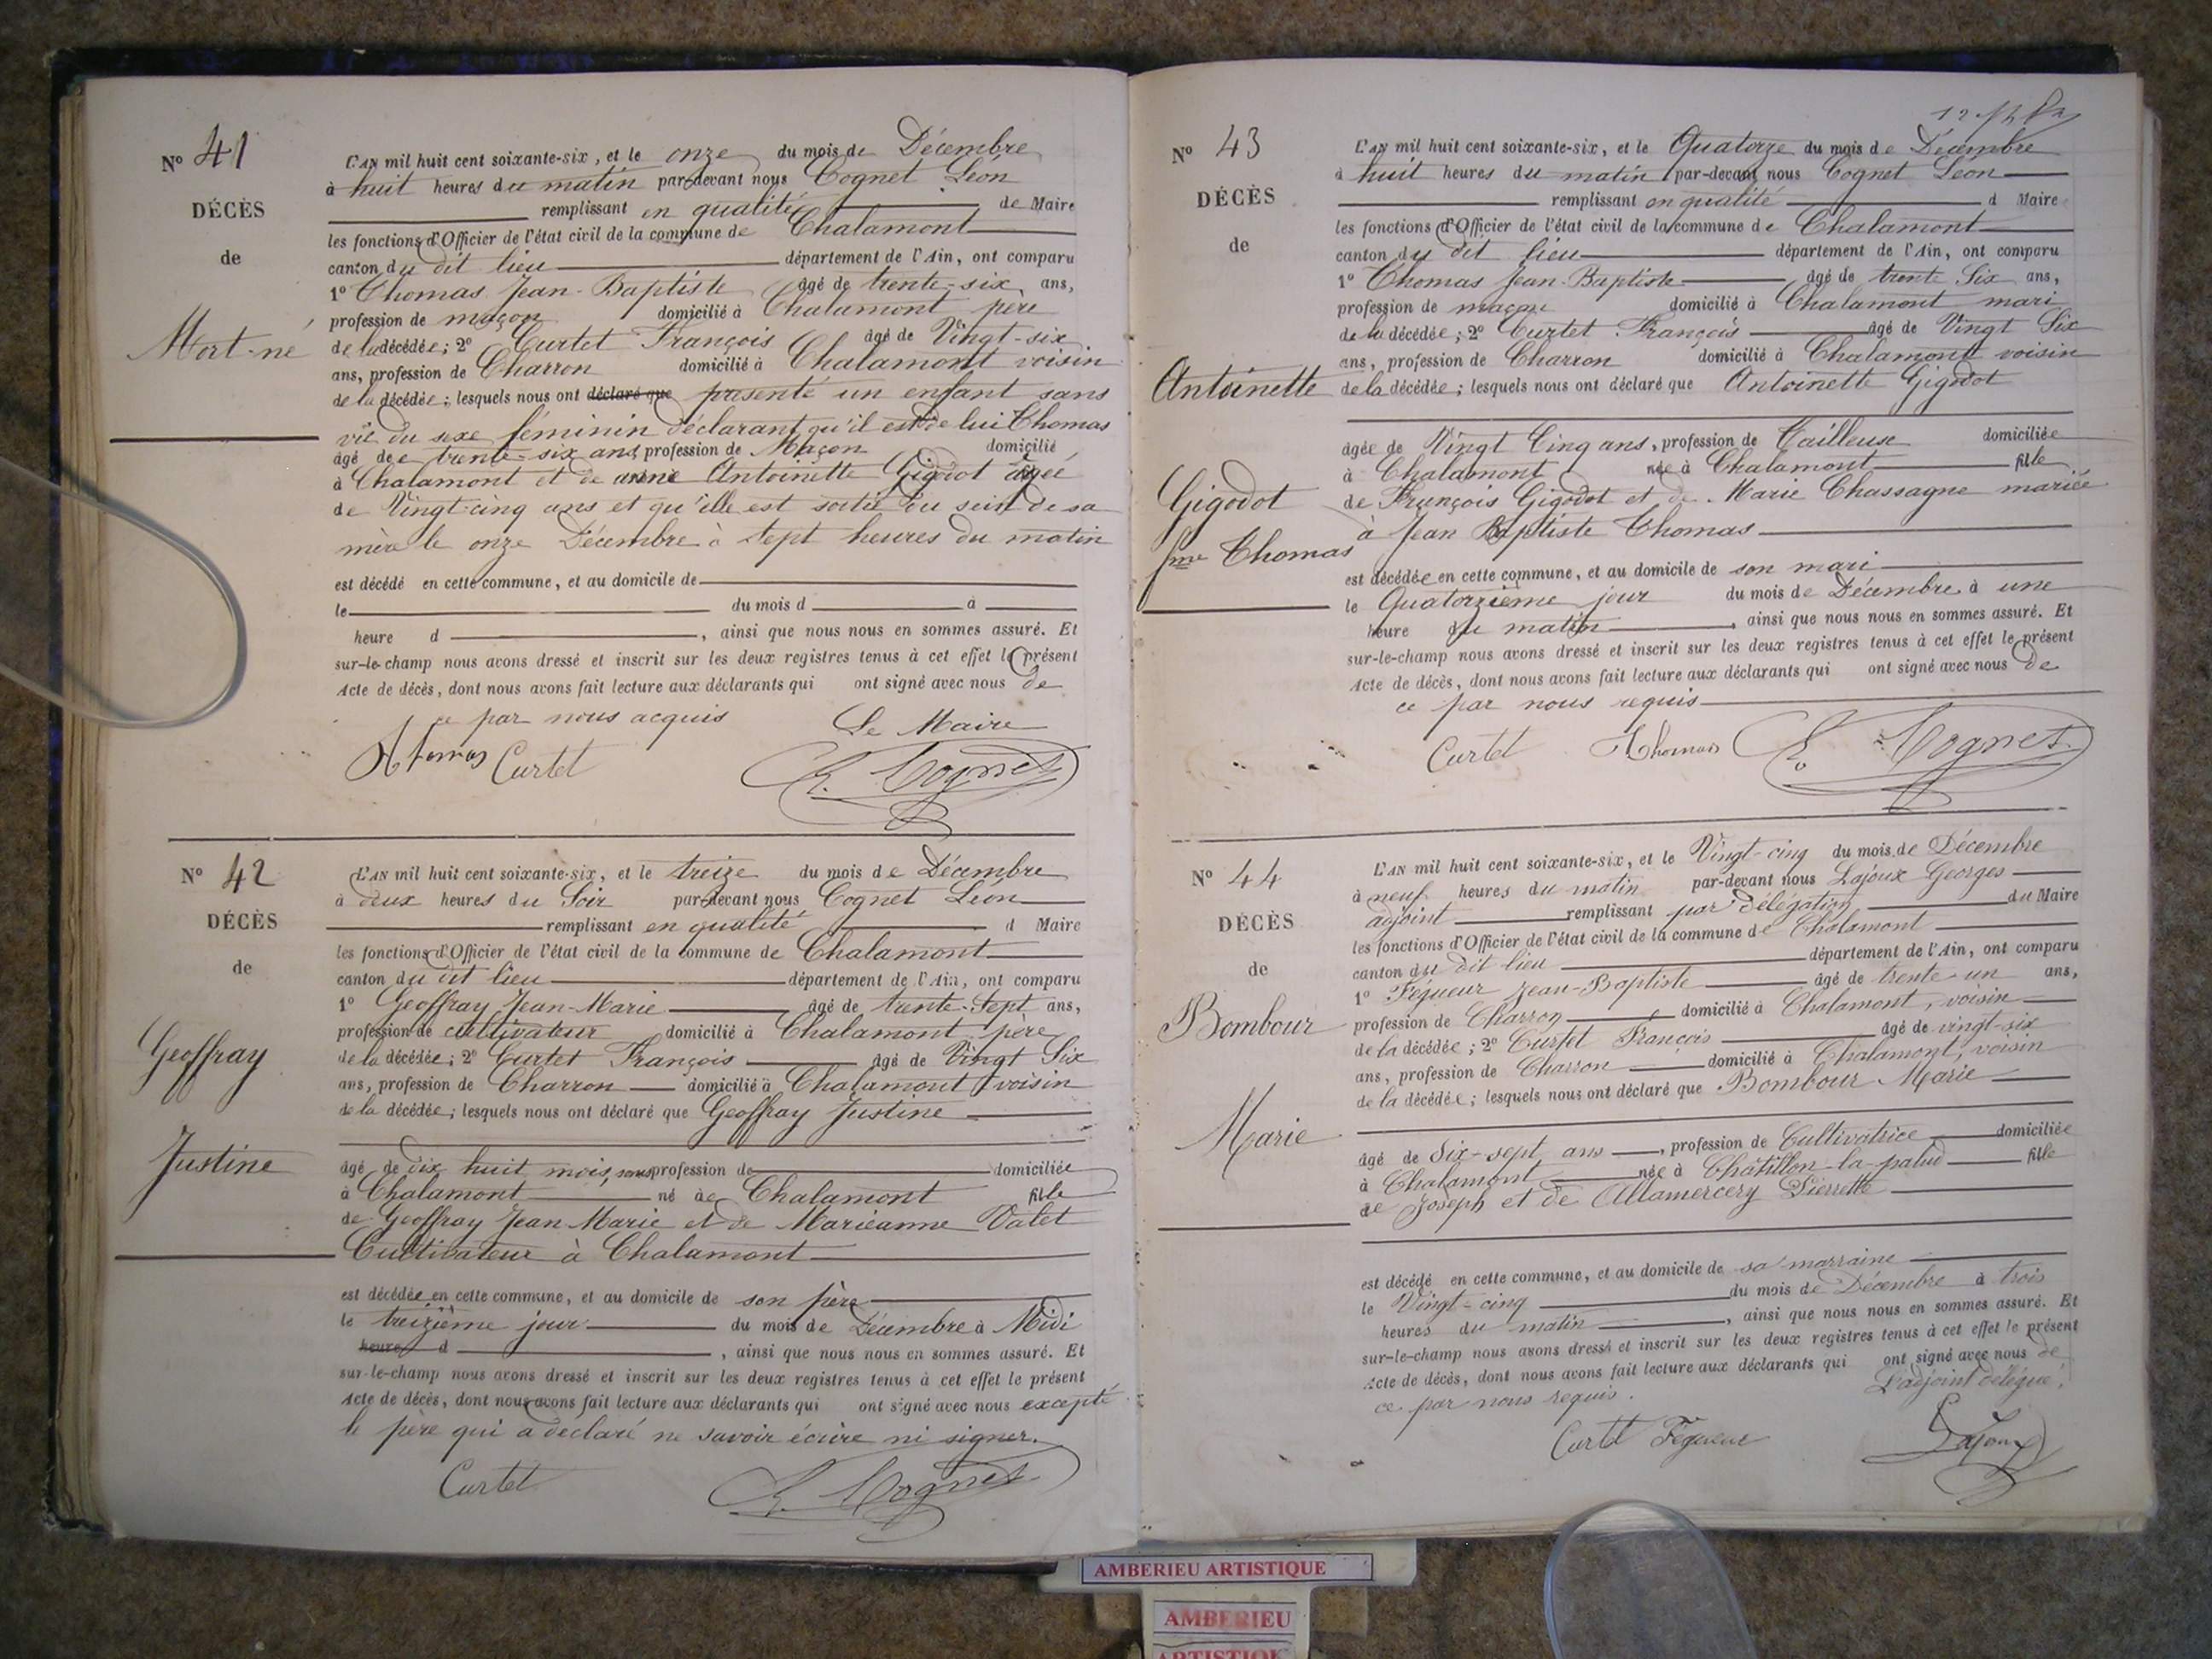 Nº 41
DÉCÈS
de
Mort-né
L'AN mil huit cent soixante-six, et le onze du mois de Décembre
à huit heures du matin par-devant nous Cognet Léon
remplissant en qualité de Maire
les fonctions d'Officier de l'état civil de la commune de Chalamont
canton du dit lieu département de l'Ain, ont comparu
1º Thomas Jean-Baptiste âgé de trente-six ans,
profession de maçon domicilié à Chalamont père
de la décédée; 2º Curtet François âgé de Vingt-six
ans, profession de Charron domicilié à Chalamont voisin
de la décédée; lesquels nous ont déclaré que présenté un enfant sans
vie du sexe féminin déclarant qu'il est de lui Thomas
âgé de trente-six ans, profession de Maçon domicilié
à Chalamont et de Antoinette Gigodot âgée
de Vingt-cinq ans et qu'ille est sortie du sein de sa
mère le onze Décembre à sept heures du matin
est décédé en cette commune, et au domicile de
le du mois d à
heure d , ainsi que nous nous en sommes assuré. Et
sur-le-champ nous avons dressé et inscrit sur les deux registres tenus à cet effet le présent
Acte de décès, dont nous avons fait lecture aux déclarants qui ont signé avec nous de
ce par nous acquis Le Maire
Thomas Curtet L. Cognet
Nº 42
DÉCÈS
de
Geoffray
Justine
L'AN mil huit cent soixante-six, et le treize du mois de Décembre
à deux heures du Soir par-devant nous Cognet Léon
remplissant en qualité d Maire
les fonctions d'Officier de l'état civil de la commune de Chalamont
canton du dit lieu département de l'Ain, ont comparu
1º Geoffray Jean-Marie âgé de trente-sept ans,
profession de cultivateur domicilié à Chalamont père
de la décédée; 2º Curtet François âgé de Vingt Six
ans, profession de Charron domicilié à Chalamont voisin
de la décédée; lesquels nous ont déclaré que Geoffray Justine
âgé de dix huit mois, sans profession de domiciliée
à Chalamont né à Chalamont fille
de Geoffray Jean Marie et de Marieanne Valet
Cultivateur à Chalamont
est décédée en cette commune, et au domicile de son père
le treizième jour du mois de Décembre à Midi
heures d , ainsi que nous nous en sommes assuré. Et
sur-le-champ nous avons dressé et inscrit sur les deux registres tenus à cet effet le présent
Acte de décès, dont nous avons fait lecture aux déclarants qui ont signé avec nous excepté
le père qui a déclaré ne savoir écrire ni signer.
Curtet L. Cognet
Nº 43
DÉCÈS
de
Antoinette
Gigodot
fme Thomas
L'AN mil huit cent soixante-six, et le Quatorze du mois de Décembre
à huit heures du matin par-devant nous Cognet Léon
remplissant en qualité d Maire
les fonctions d'Officier de l'état civil de la commune de Chalamont
canton du dit lieu département de l'Ain, ont comparu
1º Thomas Jean-Baptiste âgé de trente Six ans,
profession de maçon domicilié à Chalamont mari
de la décédée; 2º Curtet François âgé de Vingt Six
ans, profession de Charron domicilié à Chalamont voisin
de la décédée; lesquels nous ont déclaré que Antoinette Gigodot
âgée de Vingt Cinq ans, profession de Tailleuse domiciliée
à Chalamont née à Chalamont fille
de François Gigodot et de Marie Chassagne mariée
à Jean Baptiste Thomas
est décédée en cette commune, et au domicile de son mari
le Quatorzième jour du mois de Décembre à une
heure du matin , ainsi que nous nous en sommes assuré. Et
sur-le-champ nous avons dressé et inscrit sur les deux registres tenus à cet effet le présent
Acte de décès, dont nous avons fait lecture aux déclarants qui ont signé avec nous de
ce par nous requis
Curtet Thomas L. Cognet
Nº 44
DÉCÈS
de
Bombour
Marie
L'AN mil huit cent soixante-six, et le Vingt-cinq du mois de Décembre
à neuf heures du matin par-devant nous Lajoux Georges
adjoint remplissant par délégation du Maire
les fonctions d'Officier de l'état civil de la commune de Chalamont
canton du dit lieu département de l'Ain, ont comparu
1º Fégueur Jean-Baptiste âgé de trente-un ans,
profession de Charron domicilié à Chalamont, voisin
de la décédée; 2º Curtet François âgé de vingt-six
ans, profession de Charron domicilié à Chalamont, voisin
de la décédée; lesquels nous ont déclaré que Bombour Marie
âgé de Six-sept ans , profession de Cultivatrice domiciliée
à Chalamont née à Châtillon-la-palud fille
de Joseph et de Allamercery Pierrette
est décédé en cette commune, et au domicile de sa marraine
le Vingt-cinq du mois de Décembre à trois
heures du matin , ainsi que nous nous en sommes assuré. Et
sur-le-champ nous avons dressé et inscrit sur les deux registres tenus à cet effet le présent
Acte de décès, dont nous avons fait lecture aux déclarants qui ont signé avec nous de
ce par nous requis. L'adjoint délégué,
Curtet Fégueur Lajoux
AMBERIEU ARTISTIQUE
AMBERIEU
ARTISTIQUE